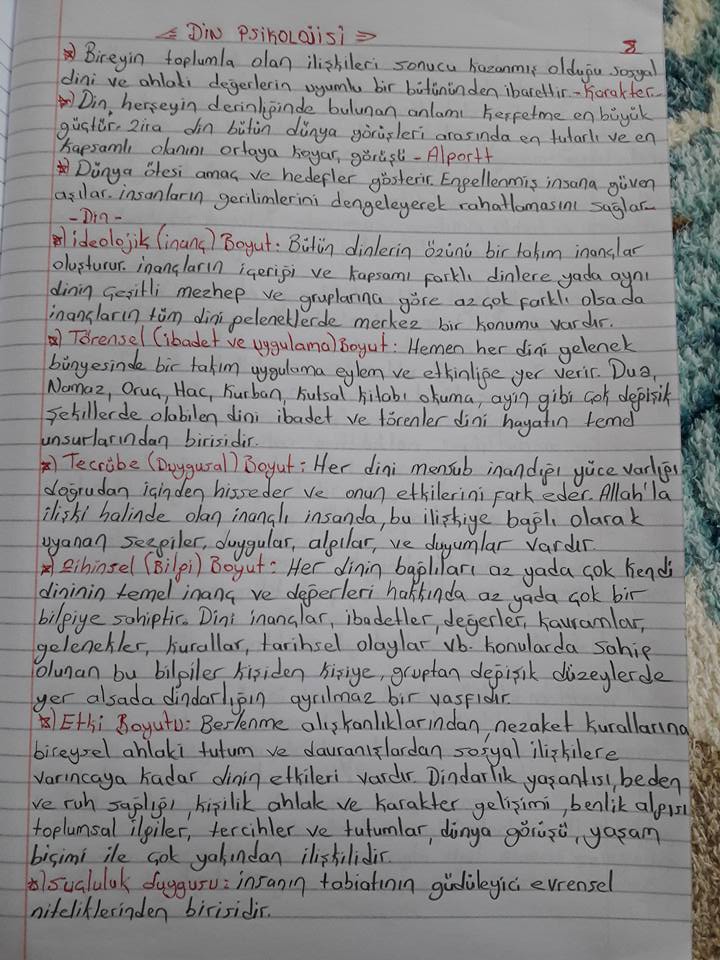 < DİN PSİKOLOJİSİ > 8
*) Bireyin toplumla olan ilişkileri sonucu kazanmış olduğu sosyal
dini ve ahlaki değerlerin uyumlu bir bütününden ibarettir. - Karakter -
*) Din, herşeyin derinliğinde bulunan anlamı keşfetme en büyük
güçtür. Zira din bütün dünya görüşleri arasında en tutarlı ve en
kapsamlı olanını ortaya koyar, görüşü - Alportt
*) Dünya ötesi amaç ve hedefler gösterir. Engellenmiş insana güven
aşılar. insanların gerilimlerini dengeleyerek rahatlamasını sağlar.
- Din -
*) ideolojik (inanç) Boyut: Bütün dinlerin özünü bir takım inançlar
oluşturur. inançların içeriği ve kapsamı farklı dinlere yada aynı
dinin çeşitli mezhep ve gruplarına göre az çok farklı olsada
inançların tüm dini geleneklerde merkez bir konumu vardır.
*) Törensel (ibadet ve uygulama) Boyut: Hemen her dini gelenek
bünyesinde bir takım uygulama eylem ve etkinliğe yer verir. Dua,
Namaz, Oruç, Hac, Kurban, Kutsal kitabı okuma, ayin gibi çok değişik
şekillerde olabilen dini ibadet ve törenler dini hayatın temel
unsurlarından birisidir.
*) Tecrübe (Duygusal) Boyut: Her dini mensub inandığı yüce varlığı
doğrudan içinden hisseder ve onun etkilerini fark eder. Allah'la
ilişki halinde olan inançlı insanda, bu ilişkiye bağlı olarak
uyanan sezgiler, duygular, algılar, ve duyumlar vardır.
*) Zihinsel (Bilgi) Boyut: Her dinin bağlıları az yada çok kendi
dininin temel inanç ve değerleri hakkında az yada çok bir
bilgiye sahiptir. Dini inançlar, ibadetler, değerler, kavramlar,
gelenekler, kurallar, tarihsel olaylar vb. konularda sahip
olunan bu bilgiler kişiden kişiye, gruptan değişik düzeylerde
yer alsada dindarlığın ayrılmaz bir vasfıdır.
*) Etki Boyutu: Beslenme alışkanlıklarından, nezaket kurallarına
bireysel ahlaki tutum ve davranışlardan sosyal ilişkilere
varıncaya kadar dinin etkileri vardır. Dindarlık yaşantısı, beden
ve ruh sağlığı, kişilik ahlak ve karakter gelişimi, benlik algısı
toplumsal ilgiler, tercihler ve tutumlar, dünya görüşü, yaşam
biçimi ile çok yakından ilişkilidir.
*) Suçluluk duygusu: insanın tabiatının güdüleyici evrensel
niteliklerinden birisidir.